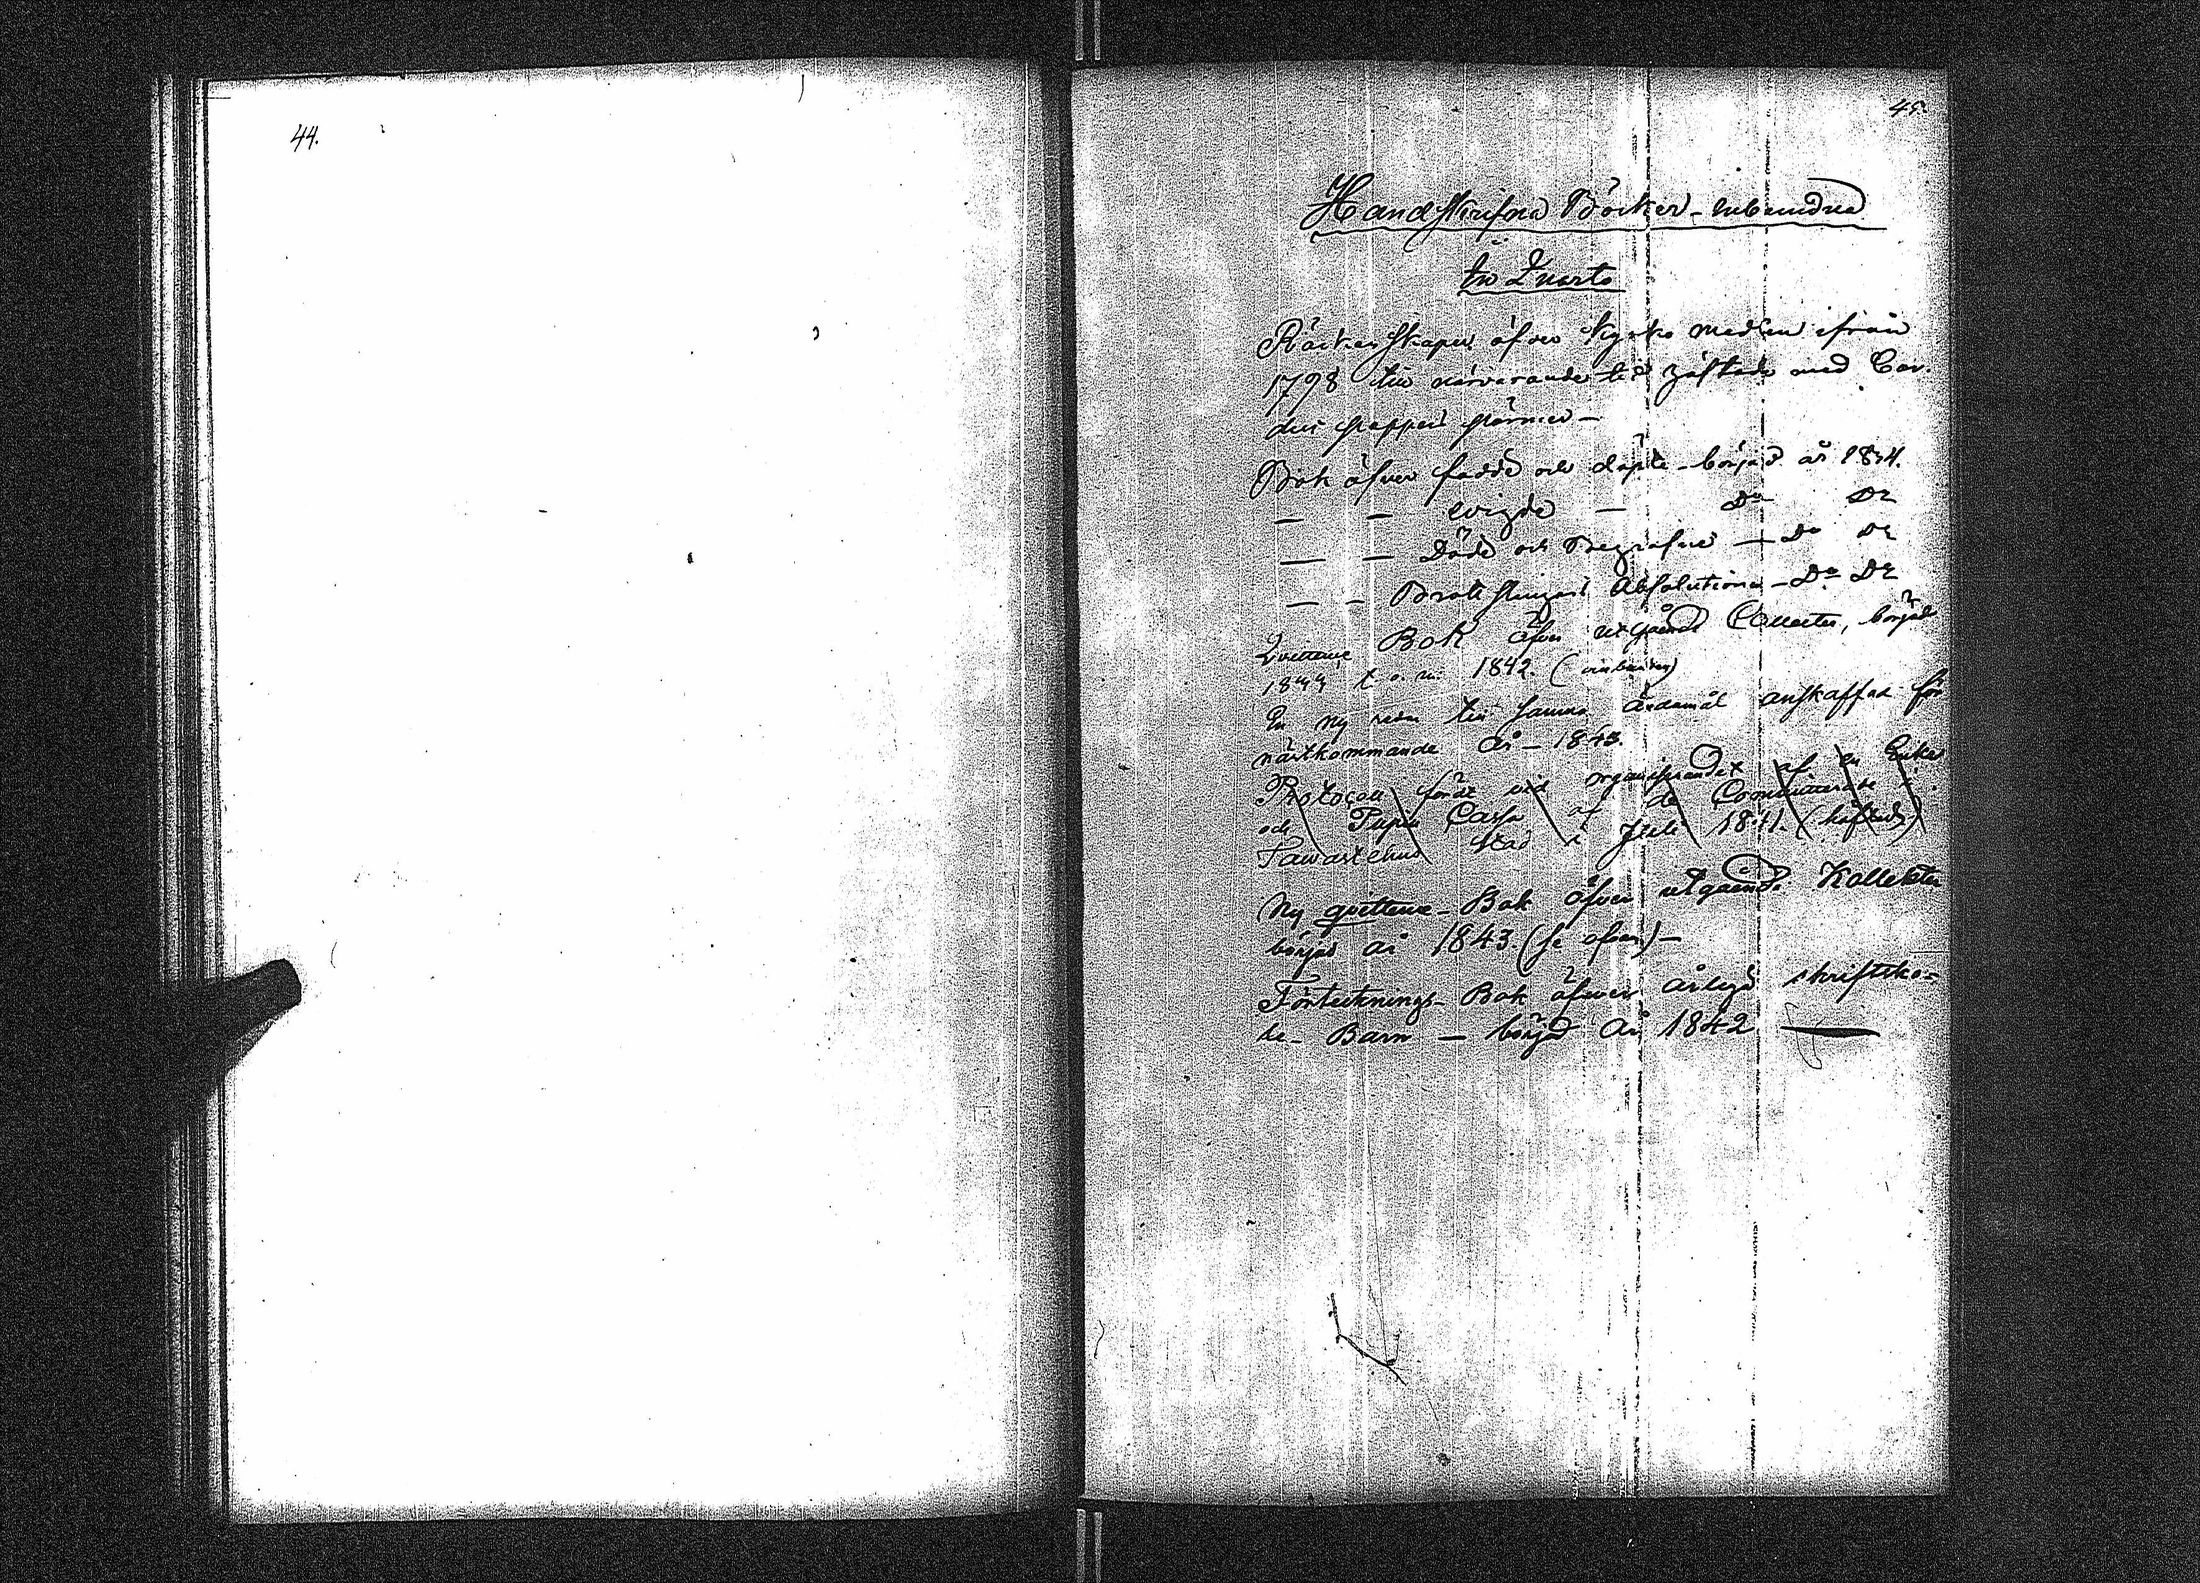 44.
45.
Handskrifna Böcker - inbundna
in Quarto
Räkenskaper öfver Kyrko medlen ifrån
1798 till närvarande tid häftade med Car-
dus pappers pärmar -
Bok öfver födde och döpte - börjad år 1834.
— — vigde — Do Do
— — Döde och Begrafne — Do Do
— — Brottslingars Absolution - Do Do
Quittence Bok öfver utgående Collecter, börjad
1833 t. o. m. 1842. (inbunden)
En ny redn till samma ändamål anskaffad för
nästkommande år - 1843.
Protocoll fördt vid organiserandet af en Enke
och Pupill Cassa af de Committerade i
Tawastehus stad i Juli 1841. (häftad)
Ny qvittence - Bok öfver utgående Kollekter
börjad år 1843. (se ofvan) -
Förtecknings - Bok öfwer årliga skriftsko=
le - Barn — börjad år 1842 —